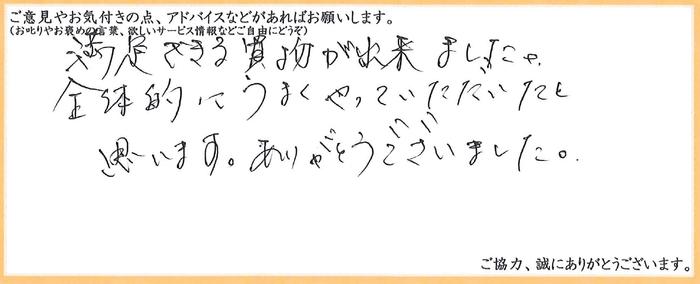 ご意見やお気付きの点、アドバイスなどがあればお願いします。
(お叱りやお褒めの言葉、欲しいサービス情報などご自由にどうぞ)
満足できる買物が出来ました。
全体的にうまくやっていただいたと
思います。ありがとうございました。
ご協力、誠にありがとうございます。